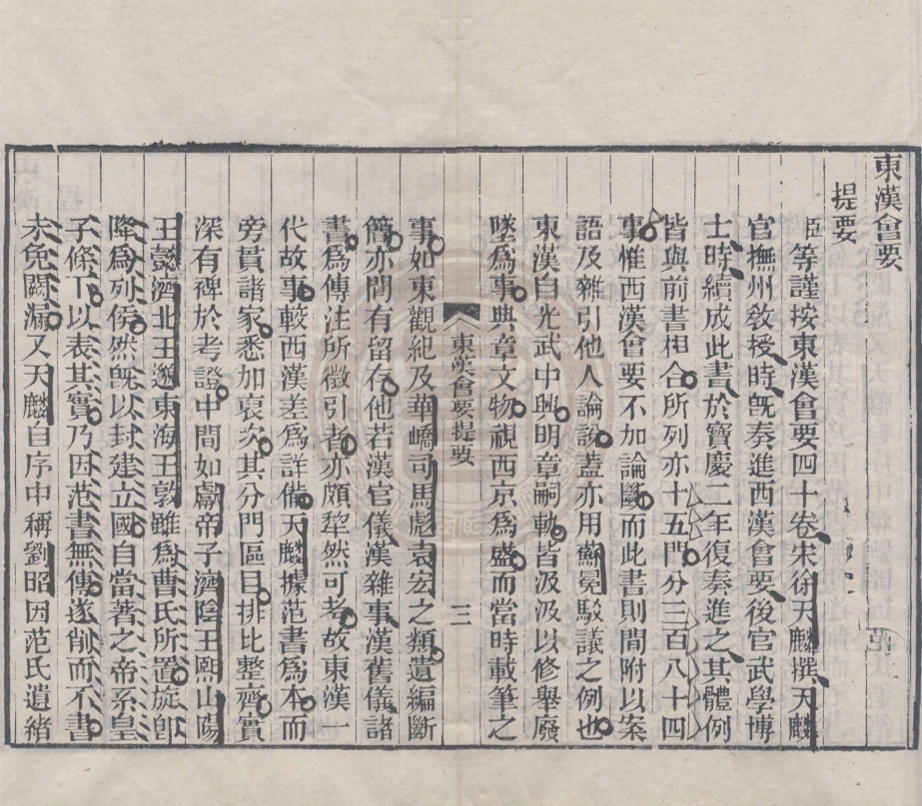 東漢會要
提要
臣等謹按東漢會要四十卷宋徐天麟撰天麟
官撫州敎授時旣奏進西漢會要後官武學博
士時續成此書於寶慶二年復奏進之其體例
皆與前書相合所列亦十五門分三百八十四
事惟西漢會要不加論斷而此書則間附以案
語及雜引他人論說蓋亦用蘇冕駁議之例也
東漢自光武中興明章嗣軌皆汲汲以修舉廢
墜爲事典章文物視西京爲盛而當時載筆之
東漢會要提要
三
事如東觀紀及華嶠司馬彪袁宏之類遺編斷
簡亦間有留存他若漢官儀漢雜事漢舊儀諸
書爲傳注所徵引者亦頗犂然可考故東漢一
代故事較西漢差爲詳備天麟據范書爲本而
旁貫諸家悉加裒次其分門區目排比整齊實
深有裨於考證中間如獻帝子濟陰王熙山陽
王懿濟北王邈東海王敦雖爲曹氏所置旋卽
降爲列侯然旣以封建立國自當著之帝系皇
子條下以表其實乃因范書無傳遂削而不書
未免闕漏又天麟自序中稱劉昭因范氏遺緒